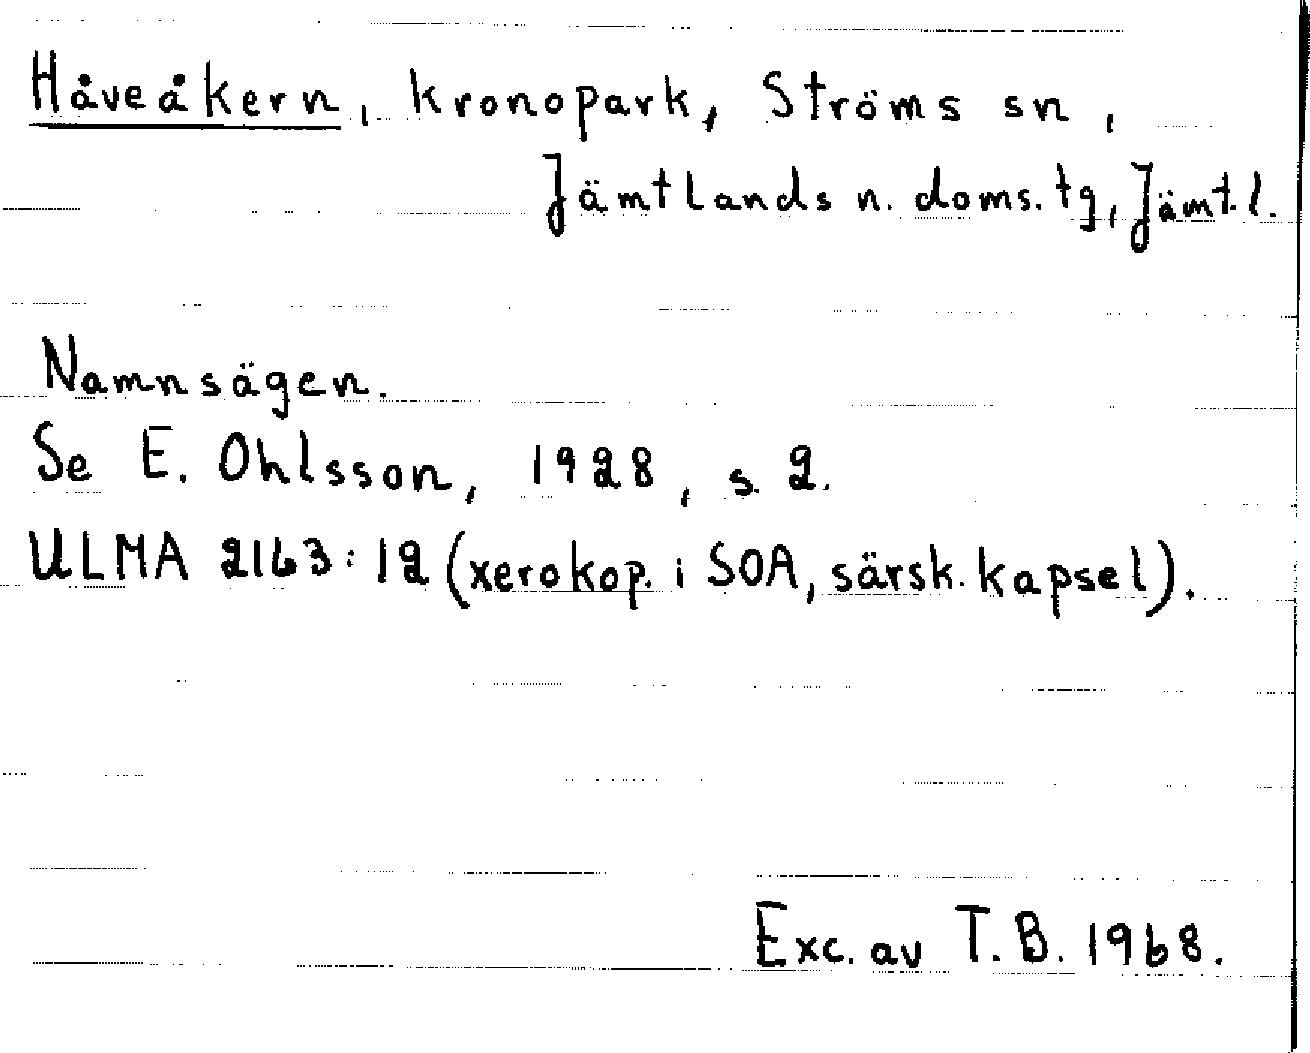 Håveåkern, kronopark, Ströms sn,
Jämtlands n. doms.tg, Jämtl.
Namnsägen.
Se E. Ohlsson, 1928, s. 2.
ULMA 2163:12 (xerokop. i SOA, särsk. kapsel).
Exc. av T. B. 1968.